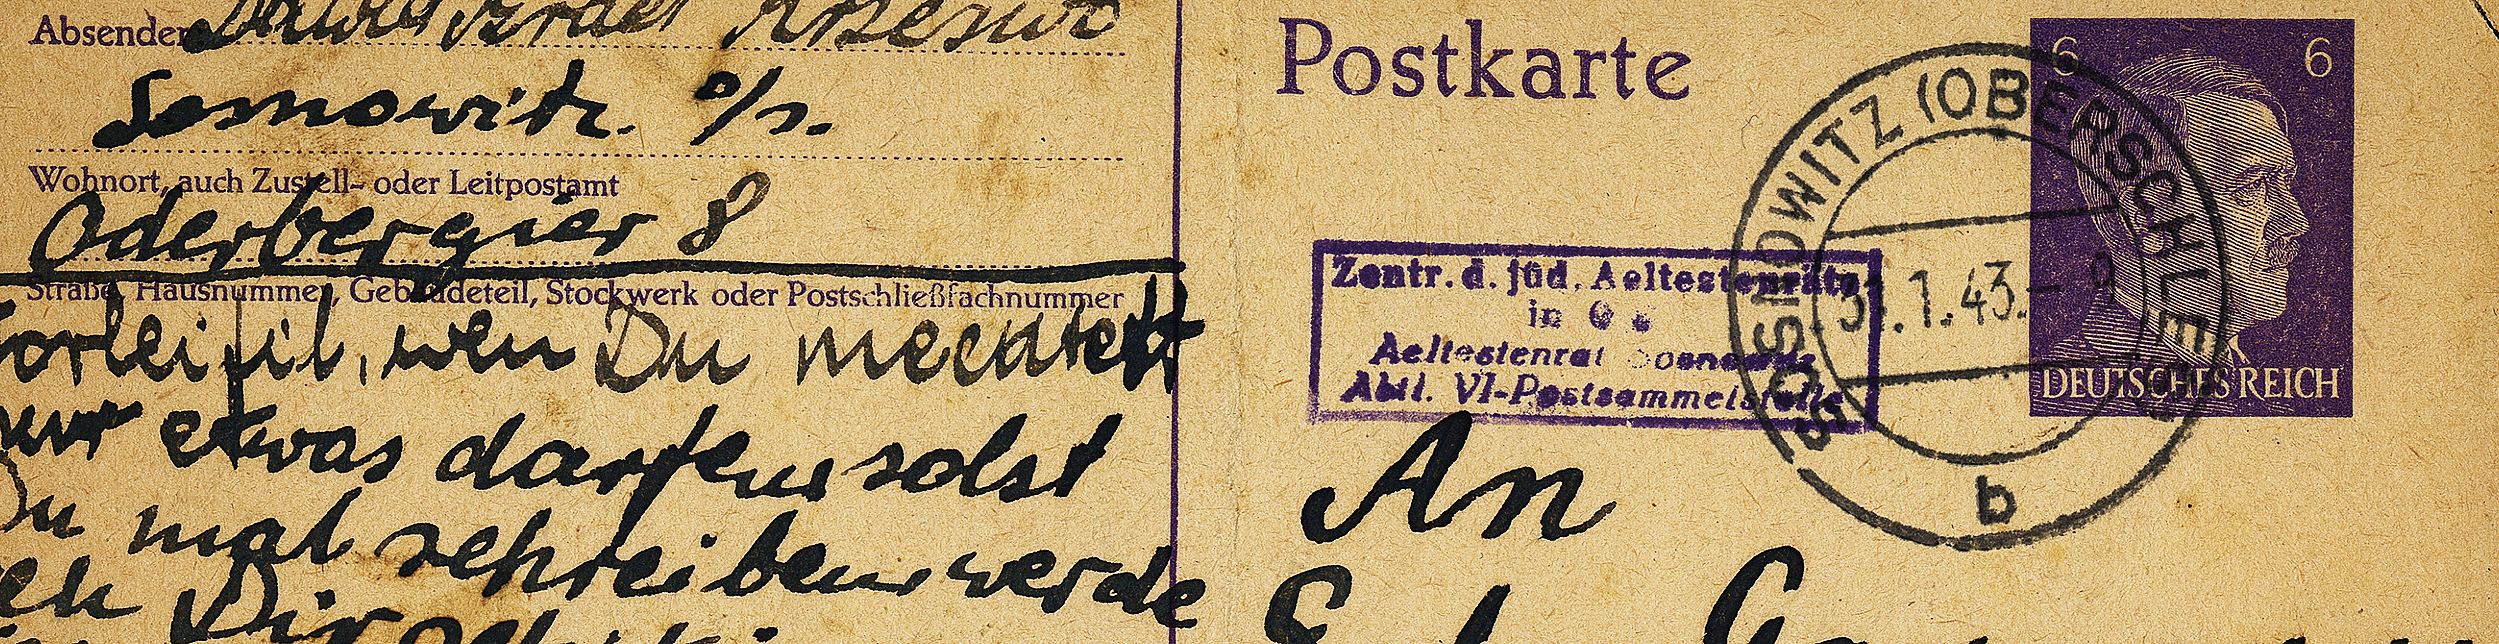 Absender
Sosnowitz. o/s.
Wohnort, auch Zustell- oder Leitpostamt
Oderbergier 8
Straße, Hausnummer, Gebäudeteil, Stockwerk oder Postschließfachnummer
wen Du mechtest
etwas darfen solst
Du mal schreiben werde
Dir
Postkarte
6 6
DEUTSCHES REICH
SOSNOWITZ (OBERSCHLES
31.1.43.- 9
b
Zentr. d. jüd. Aeltestenräte
in
Aeltestenrat Sosnowitz
Abtl. VI-Postsammelstelle
An